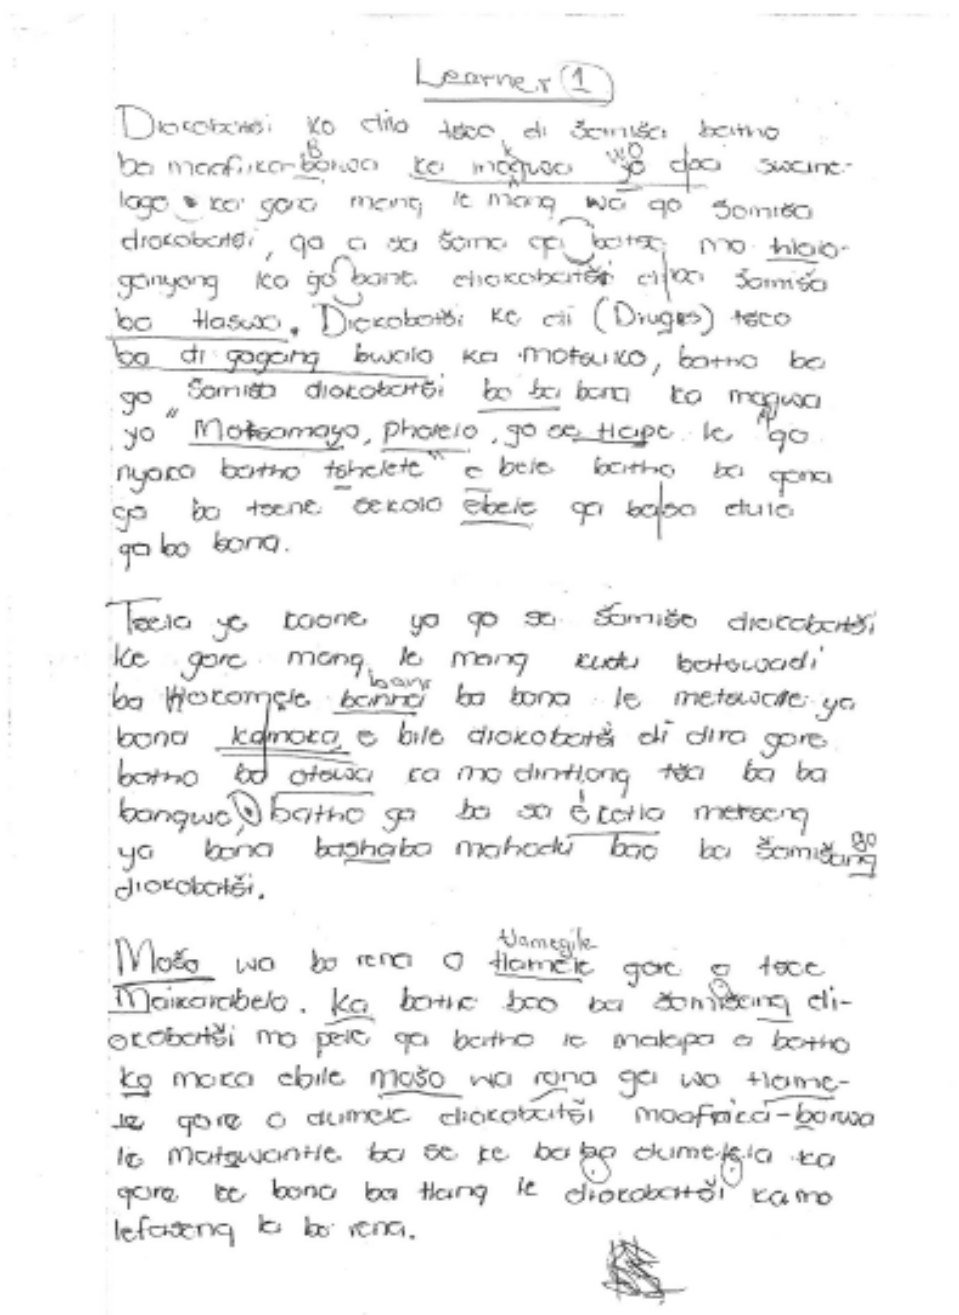 Learner 1
Diokobatši ke dilo tseo di šomiša batho
ba maafrika-borwa ka magwa yo swane-
lago ka gore mang le mang wa go šomiša
diokobatši, ga a sa šoma mo hlalo-
ganyong ka go bane diokobatši di ba šomiša
ba tlaswa. Diokobatši ke di (Druges) tseo
ba di gogang bwalo ka motsuko, batho ba
go šomiša diokobatši bo ba bona ka magwa
yo "Motsamayo, pholelo, go se tlape le go
nyaka batho tshelete" e bele batho ba gona
ga ba tsene sekolo ebele ga ba sa dula
ga bo bona.
Tsela ye kaone yo go se šomiše diokobatši
ke gore mang le mang kudu batswadi
ba hlokomele banna bana ba bona le metswalle ya
bona kamoka, e bile diokobatši di dira gore
batho ba otswa ka mo dintlong tša ba ba
bangwe, batho ga ba sa etella metseng
ya bona batshaba mahodu bao ba šomišang go
diokobatši.
Mošo wa bo rena o tlamele tlamegile gore o tsee
Maikarabelo. Ka batho bao ba šomišang di-
okobatši mo pele ga batho le malapa a batho
ka moka ebile mošo wa rona ga wo tlame-
le gore o dumele diokobatši maafrica-borwa
le Matswantle ba se ke ba ba dumelela ka
gore ke bona ba tlang le diokobatši ka mo
lefaseng la bo rena.